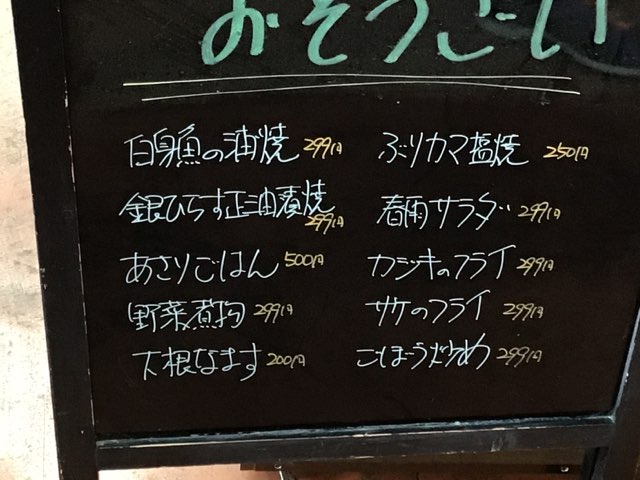 おそうざい
白身魚の油焼 299円
銀ひらす正油漬焼 299円
あさりごはん 500円
野菜煮物 299円
大根なます 200円
ぶりカマ塩焼 250円
春雨サラダ 299円
カジキのフライ 299円
サケのフライ 299円
ごぼう炒め 299円